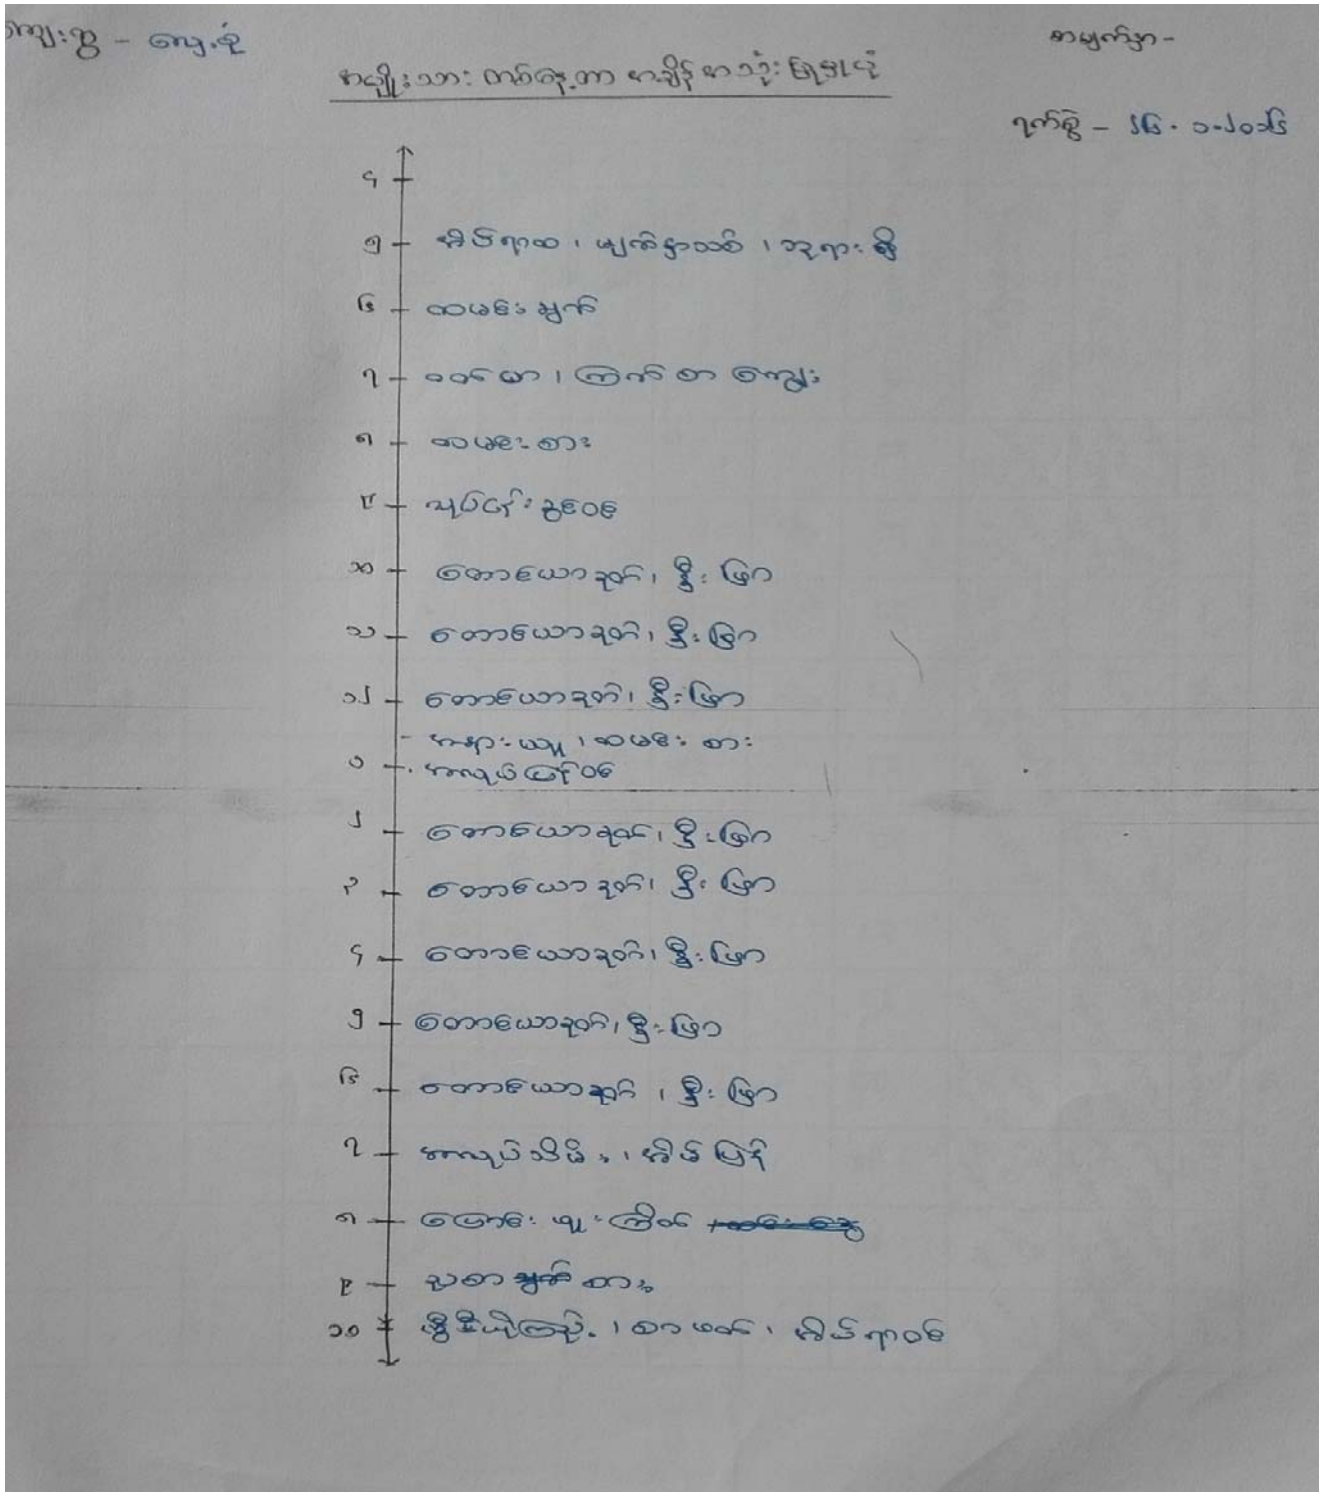 ကျေးရွာ - လေ့စုံ
စာမျက်နှာ-
အမျိုးသား တစ်နေ့တာ အချိန် အသုံးပြုမှုပုံ
ရက်စွဲ - ၂၆.၁.၂၀၁၆
၄
၅ အိပ်ရာထ၊ မျက်နှာသစ်၊ ဘုရားရှိ
၆ ထမင်းချက်
၇ ဝက်စာ၊ ကြက်စာ ကျွေး
၈ ထမင်းစား
၉ လုပ်ငန်းခွင်ဝင်
၁၀ တောယောခုတ်၊ မီးဖြာ
၁၁ တောယောခုတ်၊ မီးဖြာ
၁၂ တောယောခုတ်၊ မီးဖြာ
- အနားယူ၊ ထမင်းစား
၁ အလုပ်ပြန်ဝင်
၂ တောယောခုတ်၊ မီးဖြာ
၃ တောယောခုတ်၊ မီးဖြာ
၄ တောယောခုတ်၊ မီးဖြာ
၅ တောယောခုတ်၊ မီးဖြာ
၆ တောယောခုတ်၊ မီးဖြာ
၇ အလုပ်သိမ်း၊ အိမ်ပြန်
၈ ပြောင်းဖူးကြိတ်
၉ ညစာ ချက် စား
၁၀ ဗွီဒီယိုကြည့်၊ စာဖတ်၊ အိပ်ရာဝင်